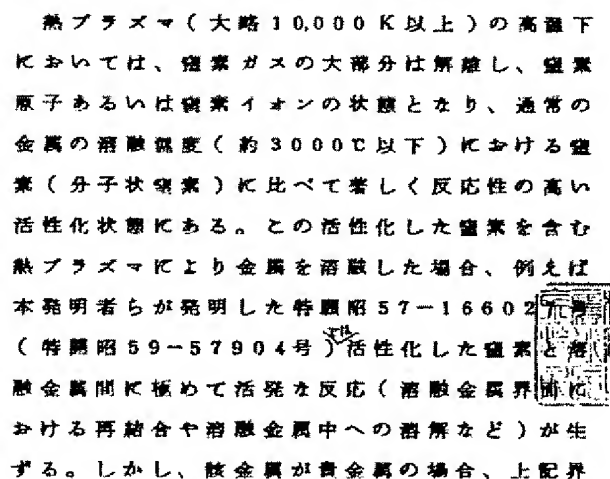 熱プラズマ(大略10,000K以上)の高温下
においては、窒素ガスの大部分は解離し、窒素
原子あるいは窒素イオンの状態となり、通常の
金属の溶融温度(約3000℃以下)における窒
素(分子状窒素)に比べて著しく反応性の高い
活性化状態にある。この活性化した窒素を含む
熱プラズマにより金属を溶融した場合、例えば
本発明者らが発明した特願昭57-16602
(特開昭59-57904号)活性化した窒素と溶
融金属間に極めて活発な反応(溶融金属界面に
おける再結合や溶融金属中への溶解など)が生
ずる。しかし、該金属が貴金属の場合、上記界